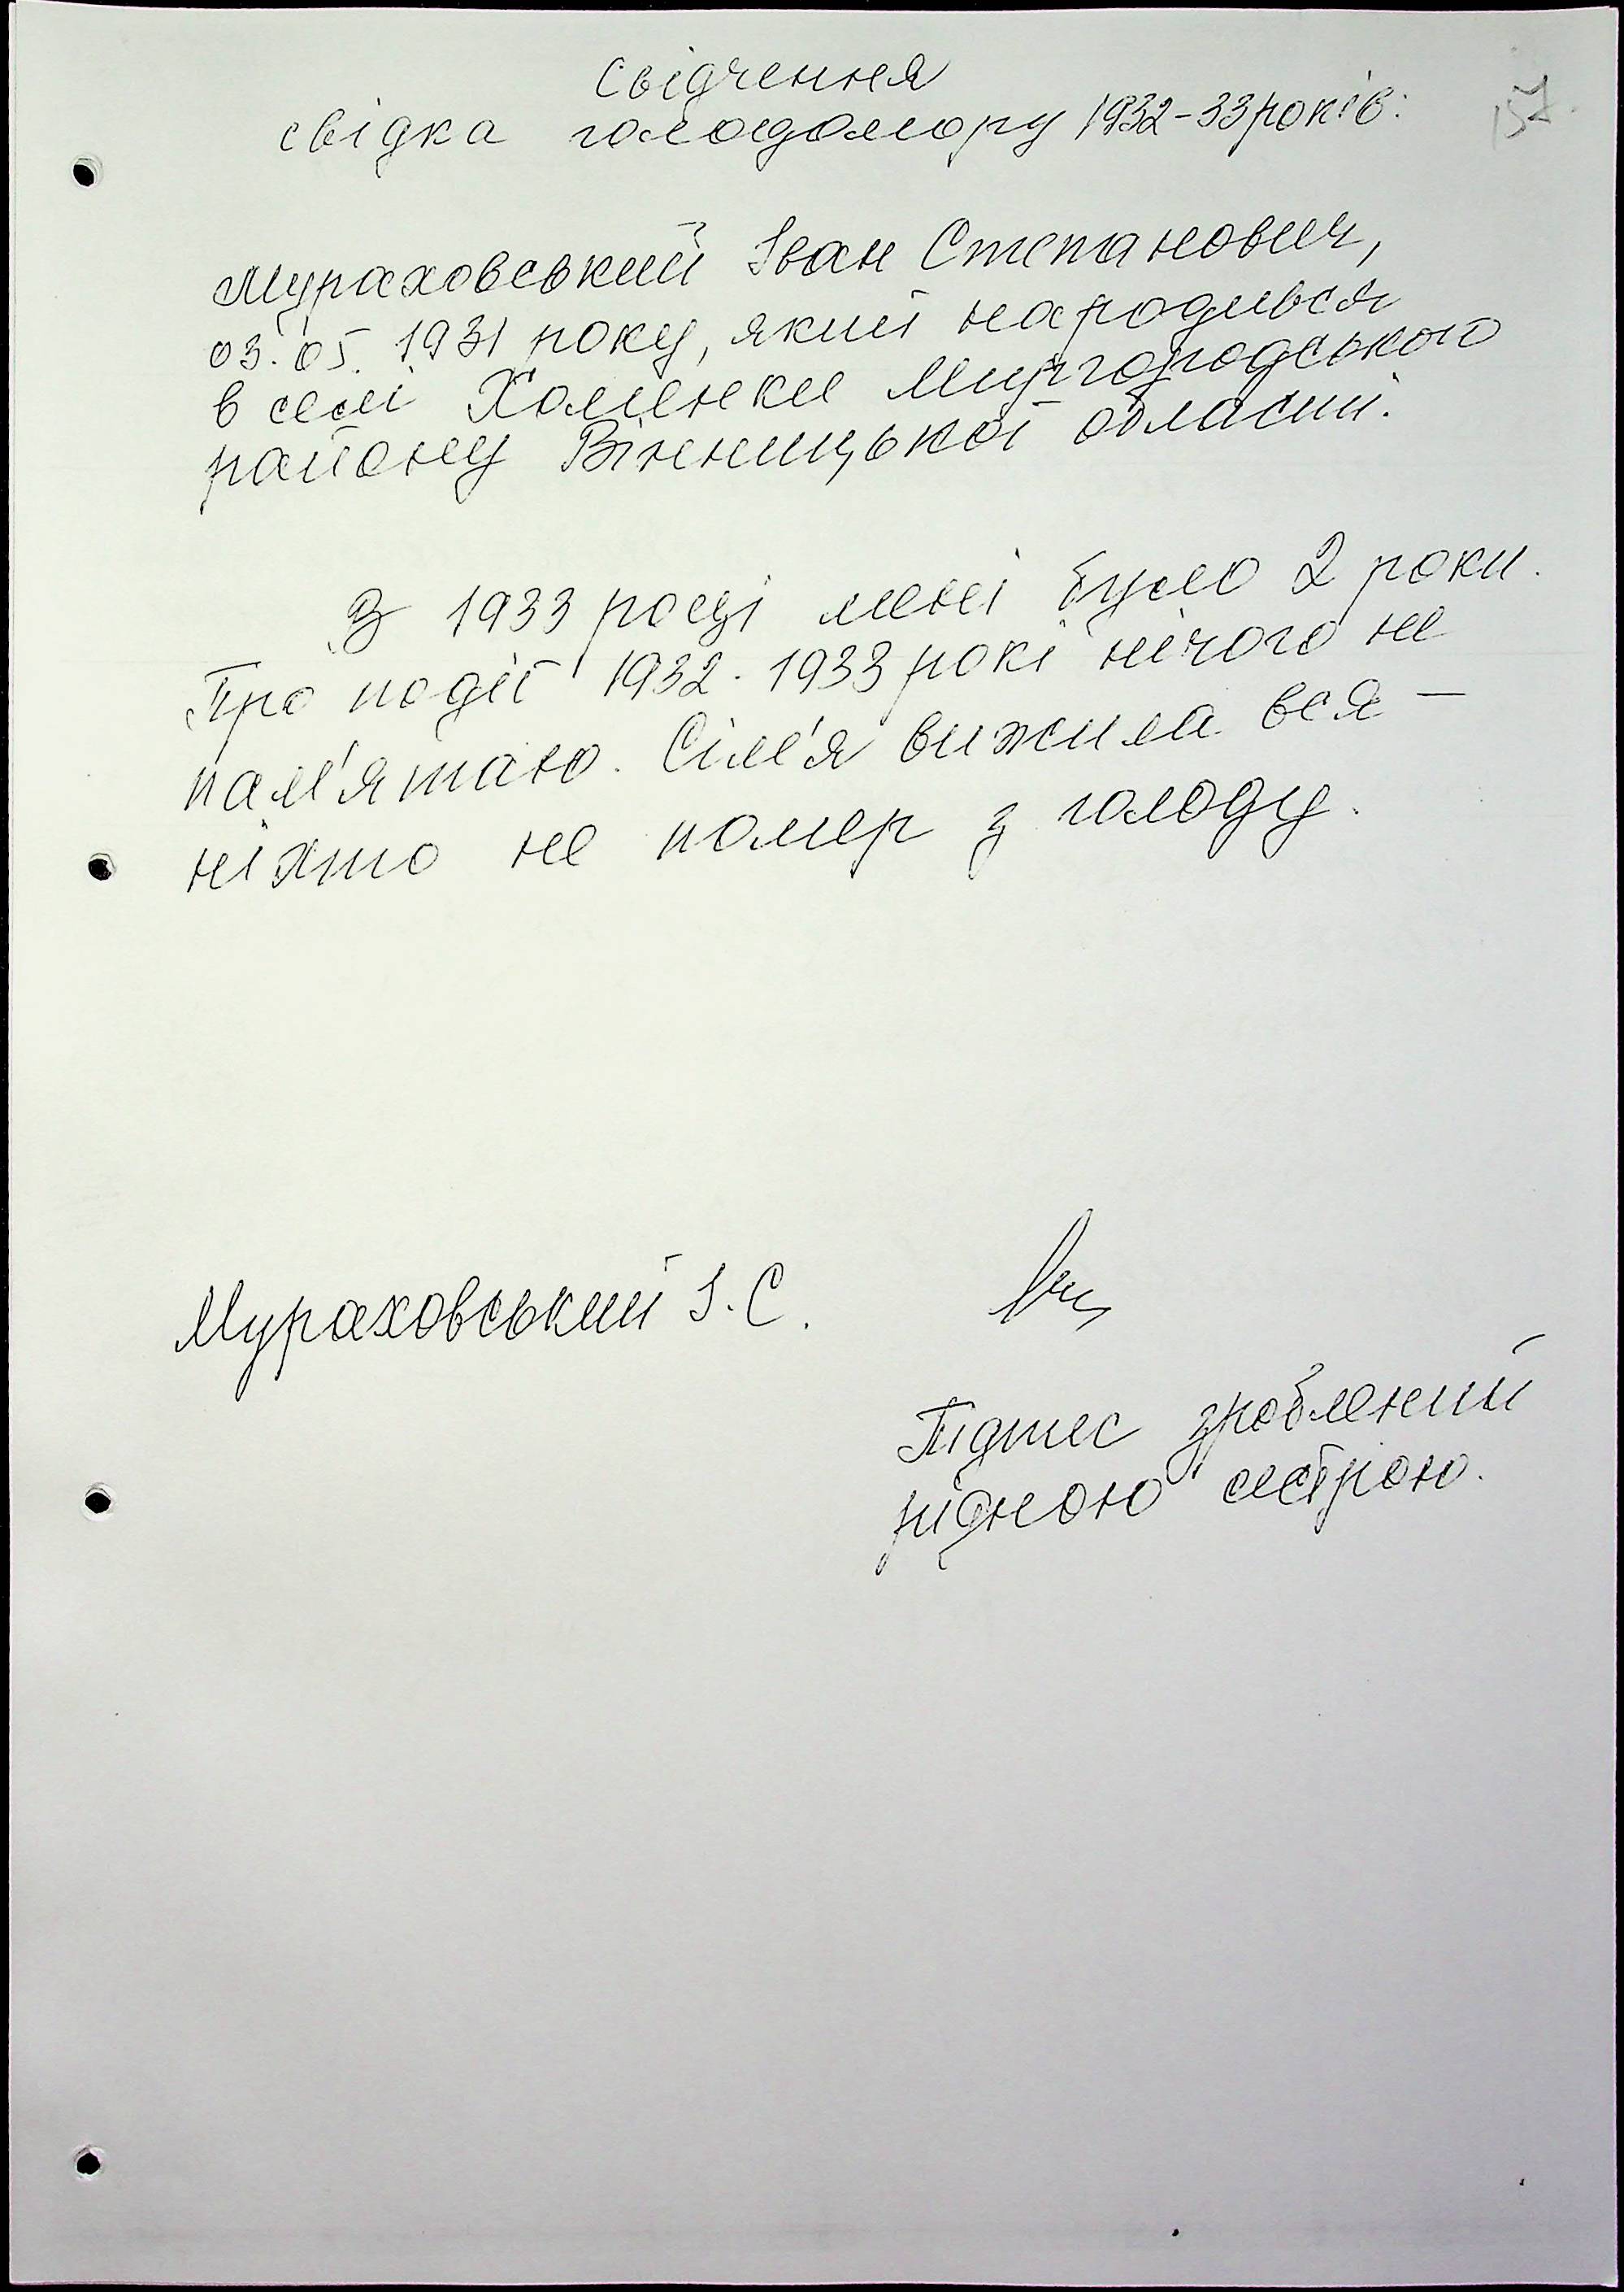 Свідчення
свідка голодомору 1932-33 років:
157.
Мураховський Іван Степанович,
03.05. 1931 року, який народився
в селі Хоменки Миргородського
району Вінницької області.
В 1933 році мені було 2 роки.
Про події 1932-1933 рокі нічого не
пам'ятаю. Сім'я вижила вся –
ніхто не помер з голоду.
Мураховський І.С.
Підпис зроблений
рідною сестрою.